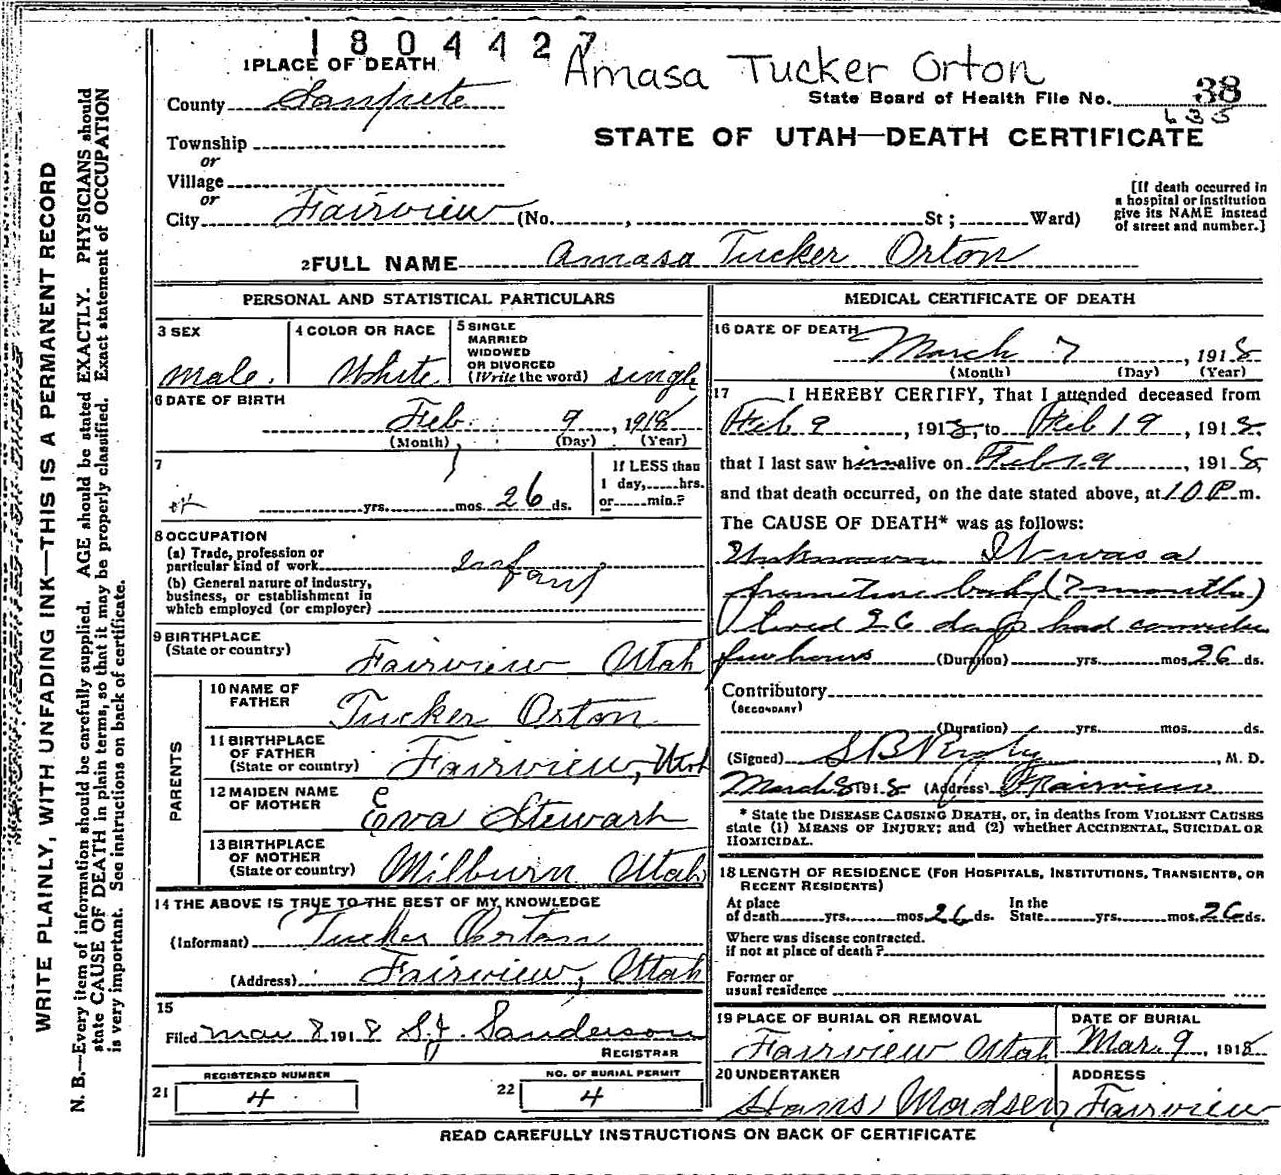 1804427
Amasa Tucker Orton
1 PLACE OF DEATH
County Sanpete
State Board of Health File No. 38
635
STATE OF UTAH—DEATH CERTIFICATE
Township
or
Village
or
City Fairview (No. , St; Ward)
[If death occurred in
a hospital or institution
give its NAME instead
of street and number.]
2 FULL NAME Amasa Tucker Orton
PERSONAL AND STATISTICAL PARTICULARS
3 SEX
male.
4 COLOR OR RACE
White
5 SINGLE
MARRIED
WIDOWED
OR DIVORCED
(Write the word) single
6 DATE OF BIRTH
Feb. 9, 1918
(Month) (Day) (Year)
7
yrs. mos. 26 ds.
If LESS than
1 day, hrs.
or min.?
8 OCCUPATION
(a) Trade, profession or
particular kind of work infant
(b) General nature of industry,
business, or establishment in
which employed (or employer)
9 BIRTHPLACE
(State or country)
Fairview Utah
PARENTS
10 NAME OF
FATHER
Tucker Orton
11 BIRTHPLACE
OF FATHER
(State or country) Fairview, Utah
12 MAIDEN NAME
OF MOTHER
Eva Stewart
13 BIRTHPLACE
OF MOTHER
(State or country) Milburn Utah
14 THE ABOVE IS TRUE TO THE BEST OF MY KNOWLEDGE
(Informant) Tucker Orton
(Address) Fairview, Utah
15
Filed Mar 8 1918 S.J. Sanderson
REGISTRAR
REGISTERED NUMBER
21 4
NO. OF BURIAL PERMIT
22 4
MEDICAL CERTIFICATE OF DEATH
16 DATE OF DEATH
March 7, 1918
(Month) (Day) (Year)
17 I HEREBY CERTIFY, That I attended deceased from
Feb 9, 1918, to Feb 19, 1918,
that I last saw him alive on Feb 19, 1918,
and that death occurred, on the date stated above, at 10 P m.
The CAUSE OF DEATH* was as follows:
Unknown It was a
premature baby (7 months)
lived 26 days had
few hours (Duration) yrs. mos. 26 ds.
Contributory
(SECONDARY)
(Duration) yrs. mos. ds.
(Signed) S B , M. D.
March 8 1918 (Address) Fairview
* State the DISEASE CAUSING DEATH, or, in deaths from VIOLENT CAUSES
state (1) MEANS OF INJURY; and (2) whether ACCIDENTAL, SUICIDAL OR
HOMICIDAL.
18 LENGTH OF RESIDENCE (FOR HOSPITALS, INSTITUTIONS, TRANSIENTS, OR
RECENT RESIDENTS)
At place
of death yrs. mos. 26 ds.
In the
State yrs. mos. 26 ds.
Where was disease contracted.
if not at place of death?
Former or
usual residence
19 PLACE OF BURIAL OR REMOVAL
Fairview Utah
DATE OF BURIAL
Mar. 9, 1918
20 UNDERTAKER
Hans Madsen
ADDRESS
Fairview
READ CAREFULLY INSTRUCTIONS ON BACK OF CERTIFICATE
WRITE PLAINLY, WITH UNFADING INK—THIS IS A PERMANENT RECORD
N. B.—Every item of information should be carefully supplied. AGE should be stated EXACTLY. PHYSICIANS should
state CAUSE OF DEATH in plain terms, so that it may be properly classified. Exact statement of OCCUPATION
is very important. See instructions on back of certificate.